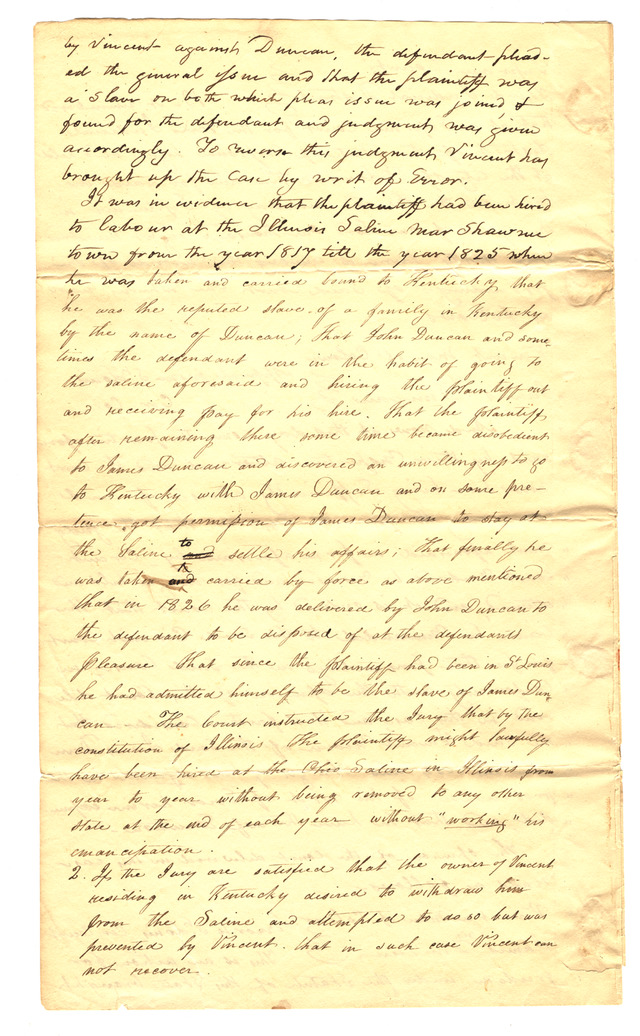 by Vincent against Duncan, the defendant plead-
ed the general issue and that the plaintiff was
a slave on both which pleas issue was joined, &
found for the defendant and judgment was given
accordingly. To reverse this judgment Vincent has
brought up the Case by writ of Error.
It was in evidence that the plaintiff had been hired
to labour at the Illinois Saline near Shawnee
town from the year 1817 till the year 1825 when
he was taken and carried bound to Kentucky that
"he was the reputed slave of a family in Kentucky
by the name of Duncan; that John Duncan and some
times the defendant were in the habit of going to
the saline aforesaid and hiring the plaintiff out
and receiving pay for his hire. That the plaintiff
after remaining there some time became disobedient
to James Duncan and discovered an unwillingness to go
to Kentucky with James Duncan and on some pre-
tence got permission of James Duncan to stay at
the Saline to and settle his affairs; that finally he
was taken and carried by force as above mentioned
that in 1826 he was delivered by John Duncan to
the defendant to be disposed of at the defendants
pleasure that since the plaintiff had been in St Louis
he had admitted himself to be the slave of James Dun
can - The Court instructed the Jury that by the
constitution of Illinois the plaintiff might lawfully
have been hired at the Ohio Saline in Illinois from
year to year without being removed to any other
state at the end of each year without "working" his
emancipation.
2. If the Jury are satisfied that the owner of Vincent
residing in Kentucky desired to withdraw him
from the Saline and attempted to do so but was
prevented by Vincent. that in such case Vincent can
not recover.